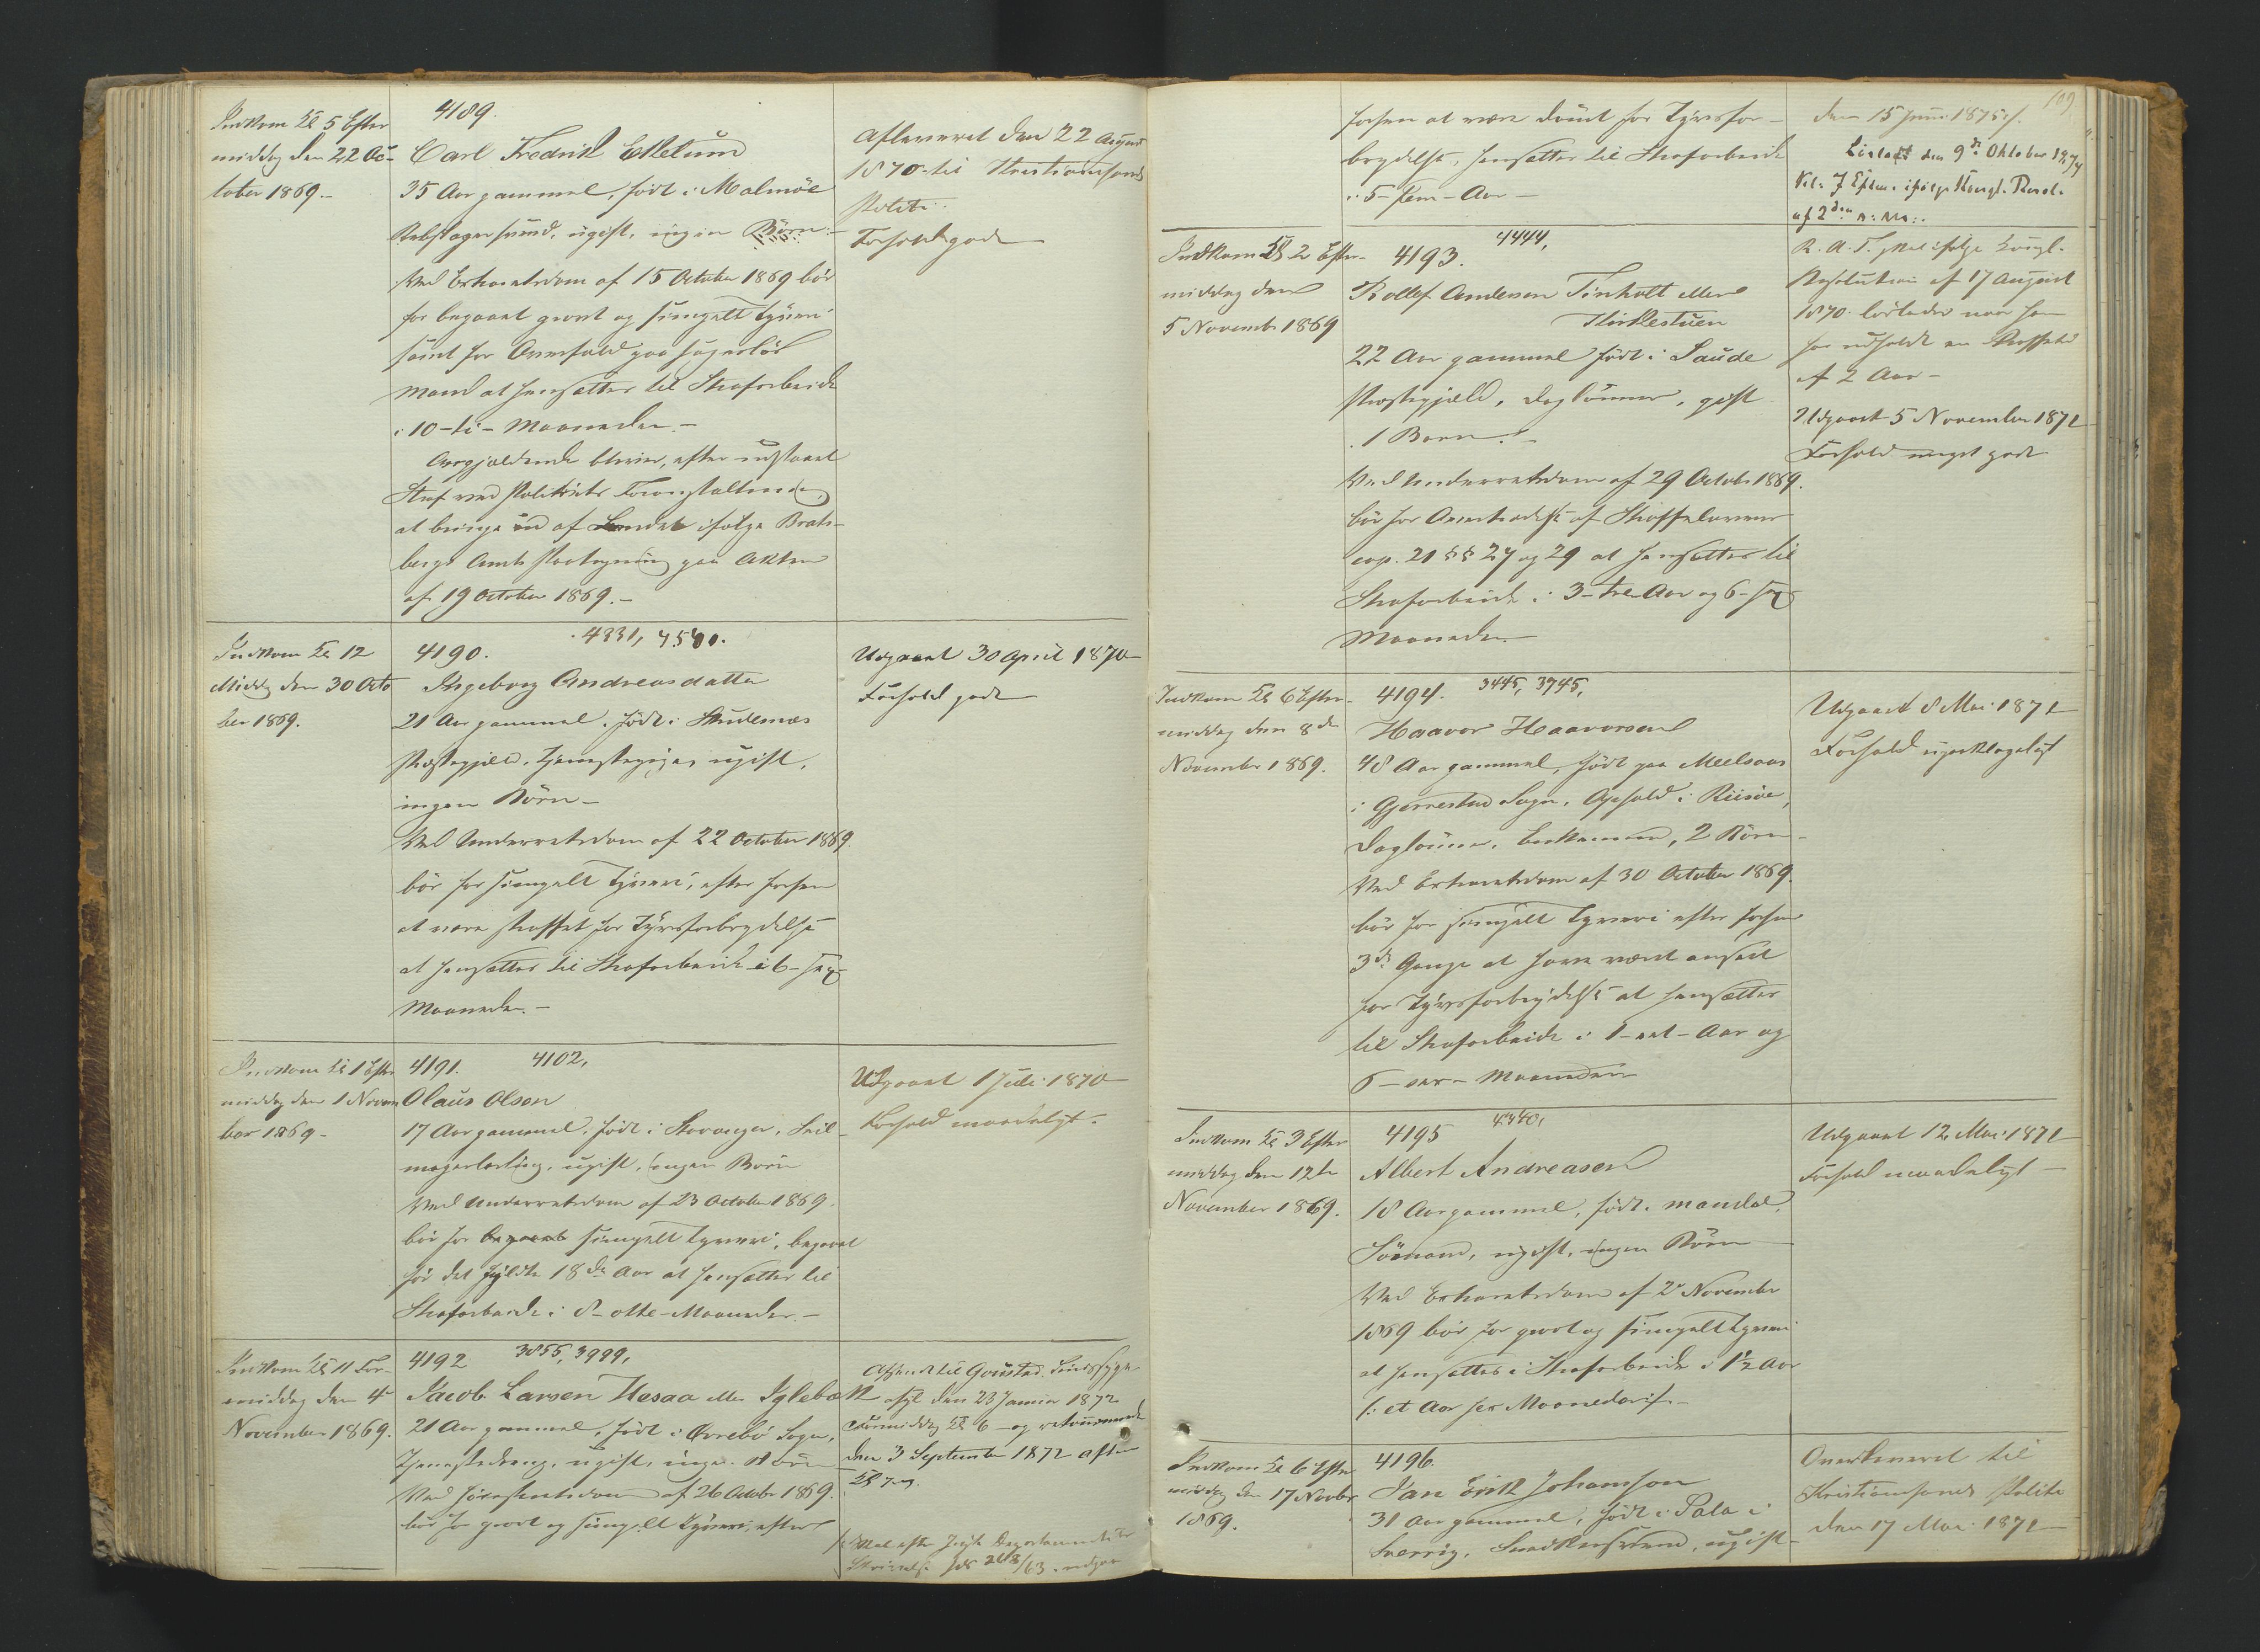 Indkom Kl 5 Efter
middag den 22 Oc-
tober 1869.-
4189.
Carl Fredrik Ekelund
35 Aar gammel, født i Malmöe
ugift, ingen Börn.-
Ved Extraretsdom af 15 October 1869 bör
for begaaet grovt og simpelt Tyveri
samt for Overfald paa sagesløs
Mand at hensættes til Strafarbeide
i 10-ti- Maaneder.-
Angjældende bliver, efter udstaaet
Straf ved Politiets Foranstaltning
at bringe ud af Landet ifølge Brats-
bergs Amts Paategning paa Akten
af 19 October 1869.-
Afleveret den 22 August
1870 til Kristiansands
Politi.
Forhold godt
Indkom Kl 12
Middg den 30 Octo
ber 1869.
4331, 4580.
4190.
Ingeborg Andreasdatter
21 Aar gammel, født i Skudenæs
Præstegjeld, Tjenestepige, ugift,
ingen Börn-
Ved Underretsdom af 22 October 1869
bör for simpelt Tyveri, efter forhen
at være straffet for Tyvsforbrydelse
at hensættes til Strafarbeide i 6- sex
Maaneder.-
Udgaaet 30 April 1870
Forhold godt
Indkom Kl 1 Efter
middag den 1 Novem
ber 1869-
4191. 4102,
Olaus Olsen
17 Aar gammel, født i Stavanger, Seil-
magerlærling, ugift, ingen Börn
Ved Underretsdom af 23 October 1869.
bör for begaaet simpelt Tyveri, begaaet
før det fyldte 18de Aar at hensættes til
Strafarbeide i 8- otte-Maaneder.-
Udgaaet 1 Juli 1870
Forhold maadeligt.
Indkom Kl 11 For-
middag den 4
November 1869.
4192 3855, 3999,
Jacob Larsen Hesaa eller Iglebæk
21 Aar gammel, født i Øvrebö Sogn,
Tjenestedreng, ugift, ingen Börn
Ved Høiesteretsdom af 26 Octobr 1869.
bör for grovt og simpelt Tyveri, efter
Afsendt til Gaustad Sindssyge
asyl den 23 Januar 1872
Formiddag Kl 6 - og retournerede
den 3 September 1872 aften
Kl 7
Skal efter Just Departementets
Skrivelse udgaa
109
forhen at være dömt for Tyvsfor-
brydelse, hensættes til Strafarbeide
i 5- fem- Aar-
den 15 Juni 1875.
Lösladt den 9de Oktober 1874
Kl. 7 Efter. ifølge Kongl. Resol.
af 2den n: M:.
Indkom Kl 2 Efter-
middag den
5 Novembr 1869
4193. 4444,
Rollef Andersen Tinholt eller
Kirkestuen
22 Aar gammel født i Saude
Præstegjeld, Daglönner, gift
1 Barn.-
Ved Underretsdom af 29 Octobr 1869.
bör for Overtrædelse af Straffelovens
cap. 21 §§ 27 og 29 at hensættes til
Strafarbeide i 3- tre- Aar og 6- sex
Maaneder.-
R. A. T. skal ifølge Kongl.
Resolution af 17 August
1870. löslades naar han
har udholdt en Straffetid
af 2 Aar-
Udgaaet 5 November 1871
Forhold meget godt
Indkom Kl 6 Efter-
middag den 8de
November 1869.
4194. 3445, 3745,
Haavor Haavorsen
48 Aar gammel, født paa Meelsaas
i Gjerrestad Sogn, Ophold i Riisöe,
Daglönner, Enkemand, 2 Börn-
Ved Extraretsdom af 30 October 1869.
bör for simpelt Tyveri efter forhen
3de Gange at have været anseet
for Tyvsforbrydelse at hensættes
til Strafarbeide i 1- eet- Aar og
6- sex- Maaneder
Udgaaet 8 Mai 1871
Forhold upaaklageligt
Indkom Kl 3 Efter
middag den 12te
November 1869.
4195 4340,
Albert Andreasen
18 Aar gammel, født i Mandal,
Sömand, ugift, ingen Börn
Ved Extraretsdom af 2 November
1869 bör for grovt og simpelt Tyveri
at hensættes i Strafarbeide i 1½ Aar
/: et Aar sex Maaneder :/.-
Udgaaet 12 Mai 1871
Forhold maadeligt-
Indkom Kl 6 Efter
middag den 17 Novbr
1869.
4196.
Jan Erik Johanson
31 Aar gammel, født i Sala i
Sverrig, Snedkersvend, ugift-
Overleveret til
Kristiansands Politi
den 17 Mai 1871